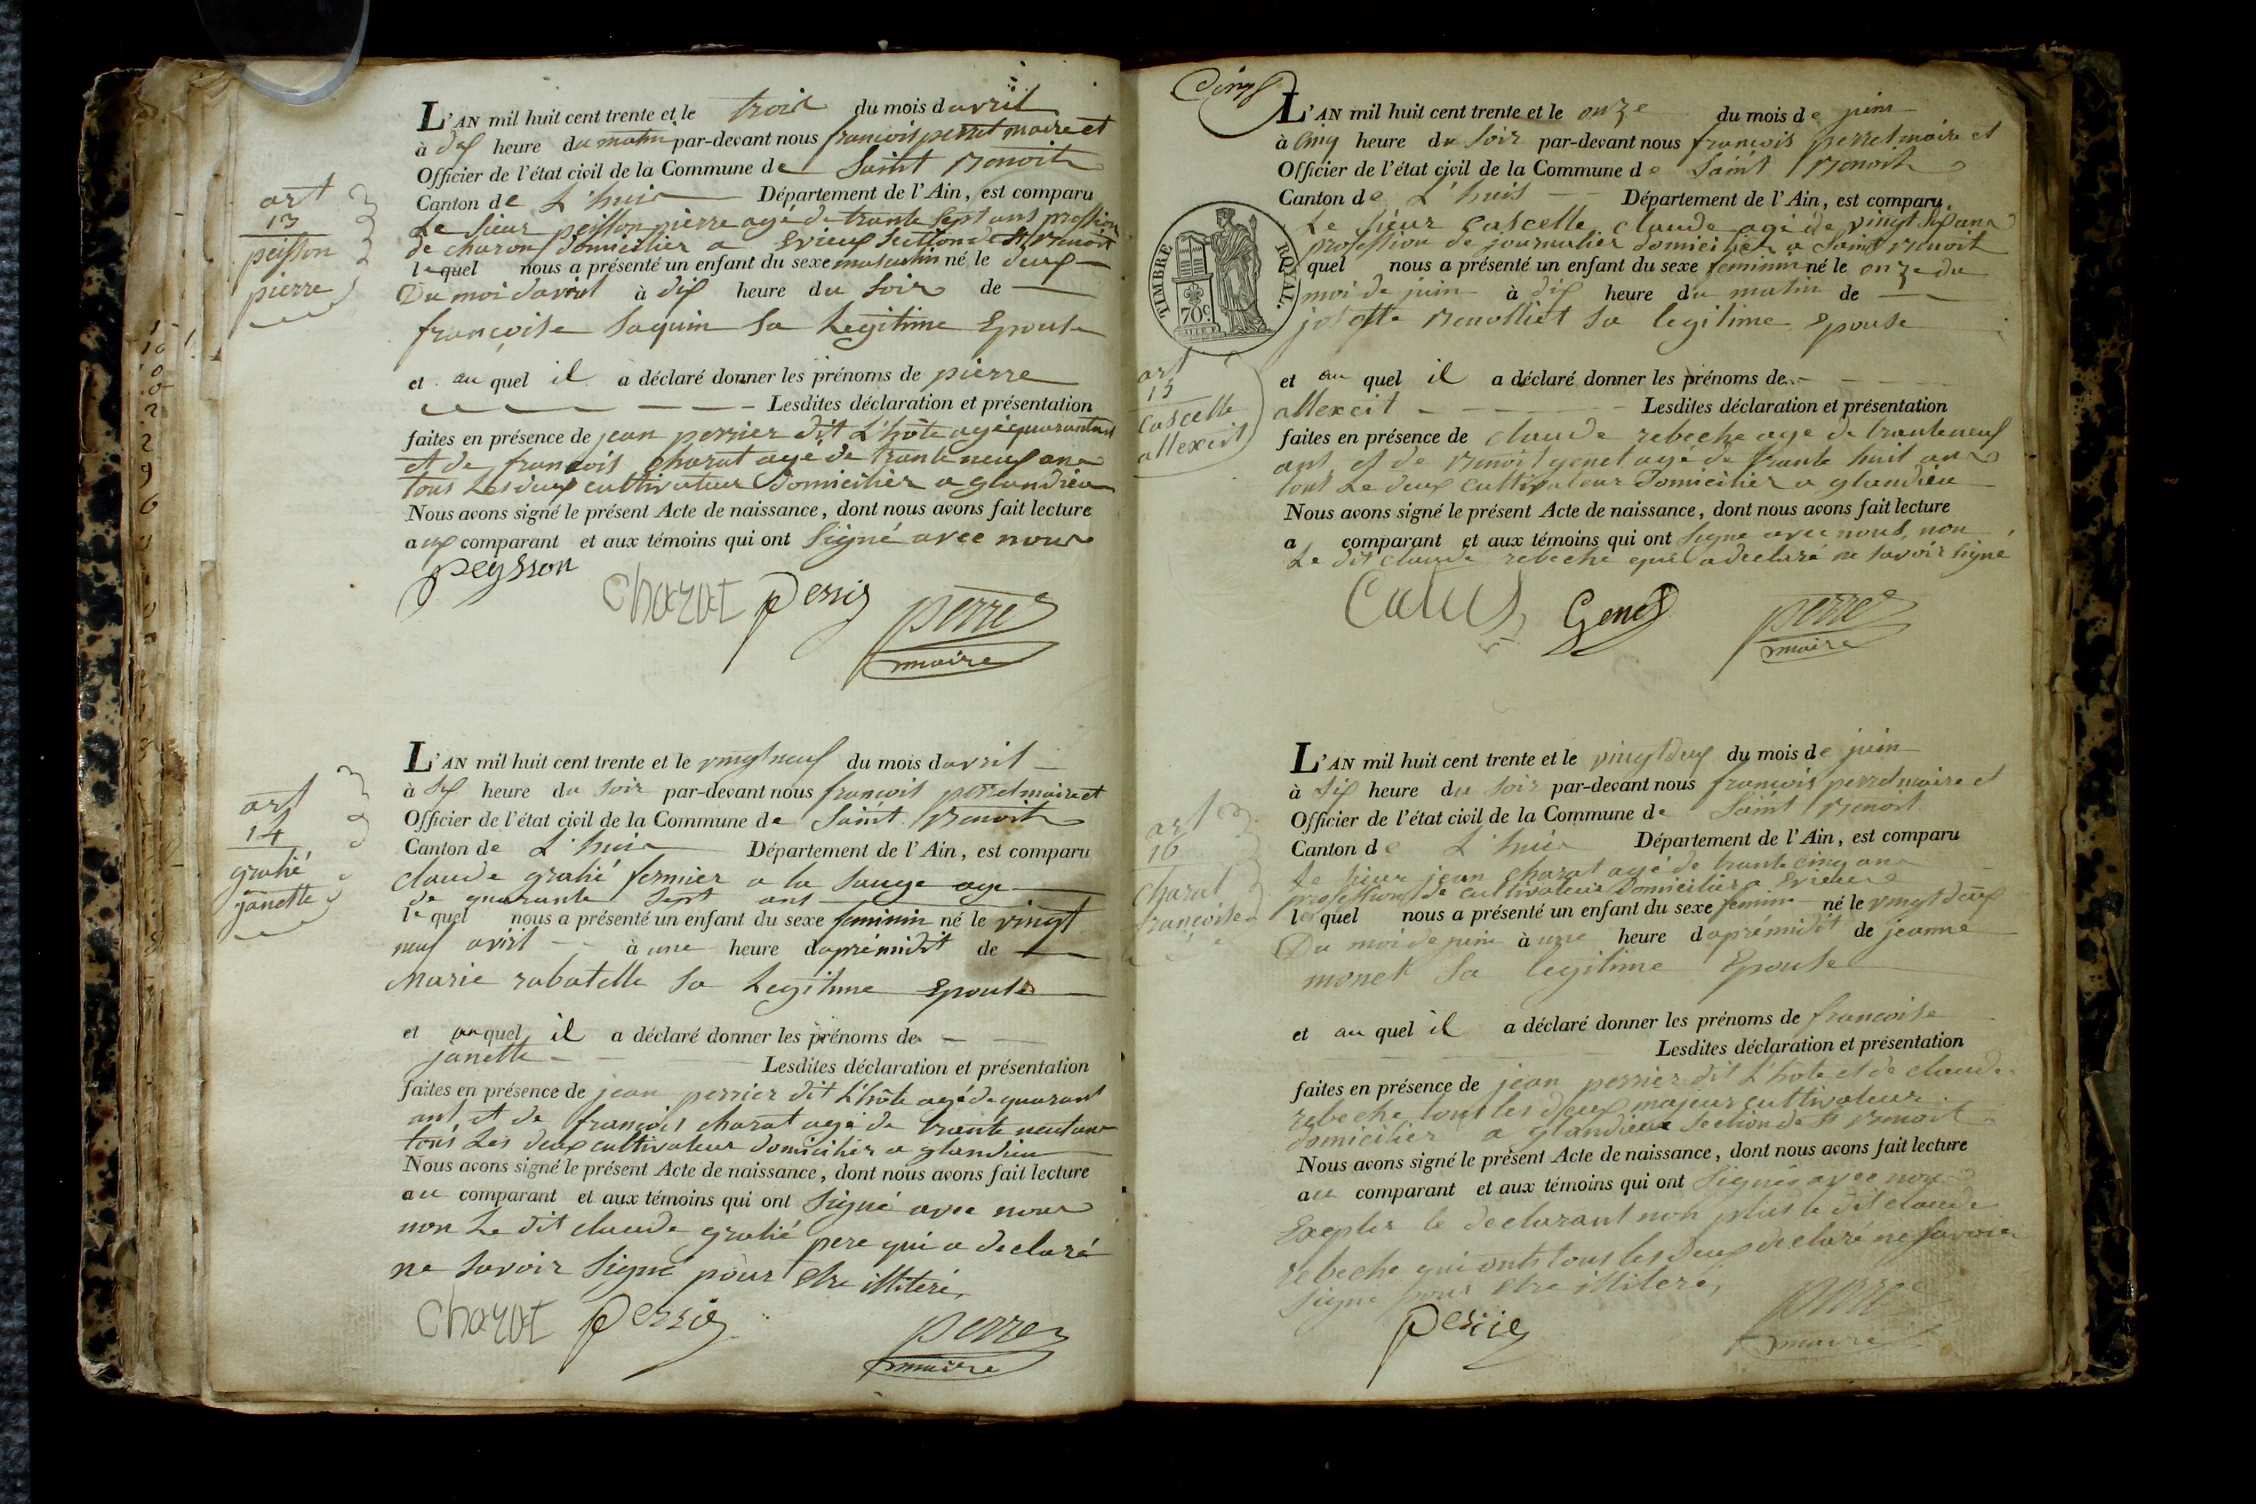 art
13
peisson
pierre
L'AN mil huit cent trente et le trois du mois d avril
à dix heure du matin par-devant nous françois perret maire et
Officier de l'état civil de la Commune de Saint Benoit
Canton de L'huis Département de l'Ain, est comparu
Le sieur peisson pierre agé de trante sept ans profession
de charon domicilier a Evieux section de St Benoit
lequel nous a présenté un enfant du sexe masculin né le deux
Du moi davril à dix heure du soir de
françoise saquin sa Legitime Epouse
et au quel il a déclaré donner les prénoms de pierre
Lesdites déclaration et présentation
faites en présence de jean perrier dit L'hôte agé quarant ans
et de françois charat agé de trante neuf ans
tous Les deux cultivateur domicilier a glandieu
Nous avons signé le présent Acte de naissance, dont nous avons fait lecture
aux comparant et aux témoins qui ont signé avec nous
peysson
charat perrie perret
maire
art
14
gratié
janette
L'AN mil huit cent trente et le vingt neuf du mois d avril
à six heure du soir par-devant nous françois perret maire et
Officier de l'état civil de la Commune de Saint Benoit
Canton de L'huis Département de l'Ain, est comparu
claude gratié fermier a la sauge age
de quarante sept ans
lequel nous a présenté un enfant du sexe feminin né le vingt
neuf avirl à une heure daprémidit de
Marie rabatelle sa Legitime Epouse
et auquel il a déclaré donner les prénoms de
janette
Lesdites déclaration et présentation
faites en présence de jean perrier dit L'hôte agé de quarant
ans et de françois charat agé de trante neuf ans
tous Les deux cultivateur domicilier a glandieu
Nous avons signé le présent Acte de naissance, dont nous avons fait lecture
au comparant et aux témoins qui ont signé avec nous
non Le dit claude gratié pere qui a declaré
ne savoir signé pour etre illiteré,
charat perrie perret
maire
Cinq
TIMBRE ROYAL.
70c.
art
15
Cascelle
allexcit
L'AN mil huit cent trente et le onze du mois de juin
à cinq heure du soir par-devant nous françois perret maire et
Officier de l'état civil de la Commune de Saint Benoit
Canton de L'huis Département de l'Ain, est comparu
Le sieur cascelle claude agé de vingt six ans
profession de journalier domicilier a Saint Benoit
quel nous a présenté un enfant du sexe feminin né le onze du
moi de juin à dix heure du matin de
josette Benolliet sa legitime Epouse
et au quel il a déclaré donner les prénoms de
allexcit Lesdites déclaration et présentation
faites en présence de claude rebeche age de trante neuf
ans et de Benoit genet agé de trante huit ans
tous Le deux cultivateur domicilier a glandieu
Nous avons signé le présent Acte de naissance, dont nous avons fait lecture
a comparant et aux témoins qui ont signé avec nous, non
Le dit claude rebeche qui a declaré ne savoir signé
Genet perret
maire
art
16
charat
françoise
L'AN mil huit cent trente et le vingt deux du mois de juin
à six heure du soir par-devant nous françois perret maire et
Officier de l'état civil de la Commune de Saint Benoit
Canton de L'huis Département de l'Ain, est comparu
Le sieur jean charat agé de trante cinq ans
profession de cultivateur domicilier a Evieux
lequel nous a présenté un enfant du sexe feminin né le vingt deux
Du moi de juin à une heure daprémidit de jeanne
monet sa legitime Epouse
et au quel il a déclaré donner les prénoms de francoise
Lesdites déclaration et présentation
faites en présence de jean perrier dit L'hôte et de claude
rebeche tous les deux majeur cultivateur
domicilier a glandieux section de St Benoit
Nous avons signé le présent Acte de naissance, dont nous avons fait lecture
au comparant et aux témoins qui ont signés avec nous
Exepter le declarant non plus le dit claude
rebeche qui ont tous les deux declaré ne savoir
signé pour etre illiteré,
perrie perret
maire